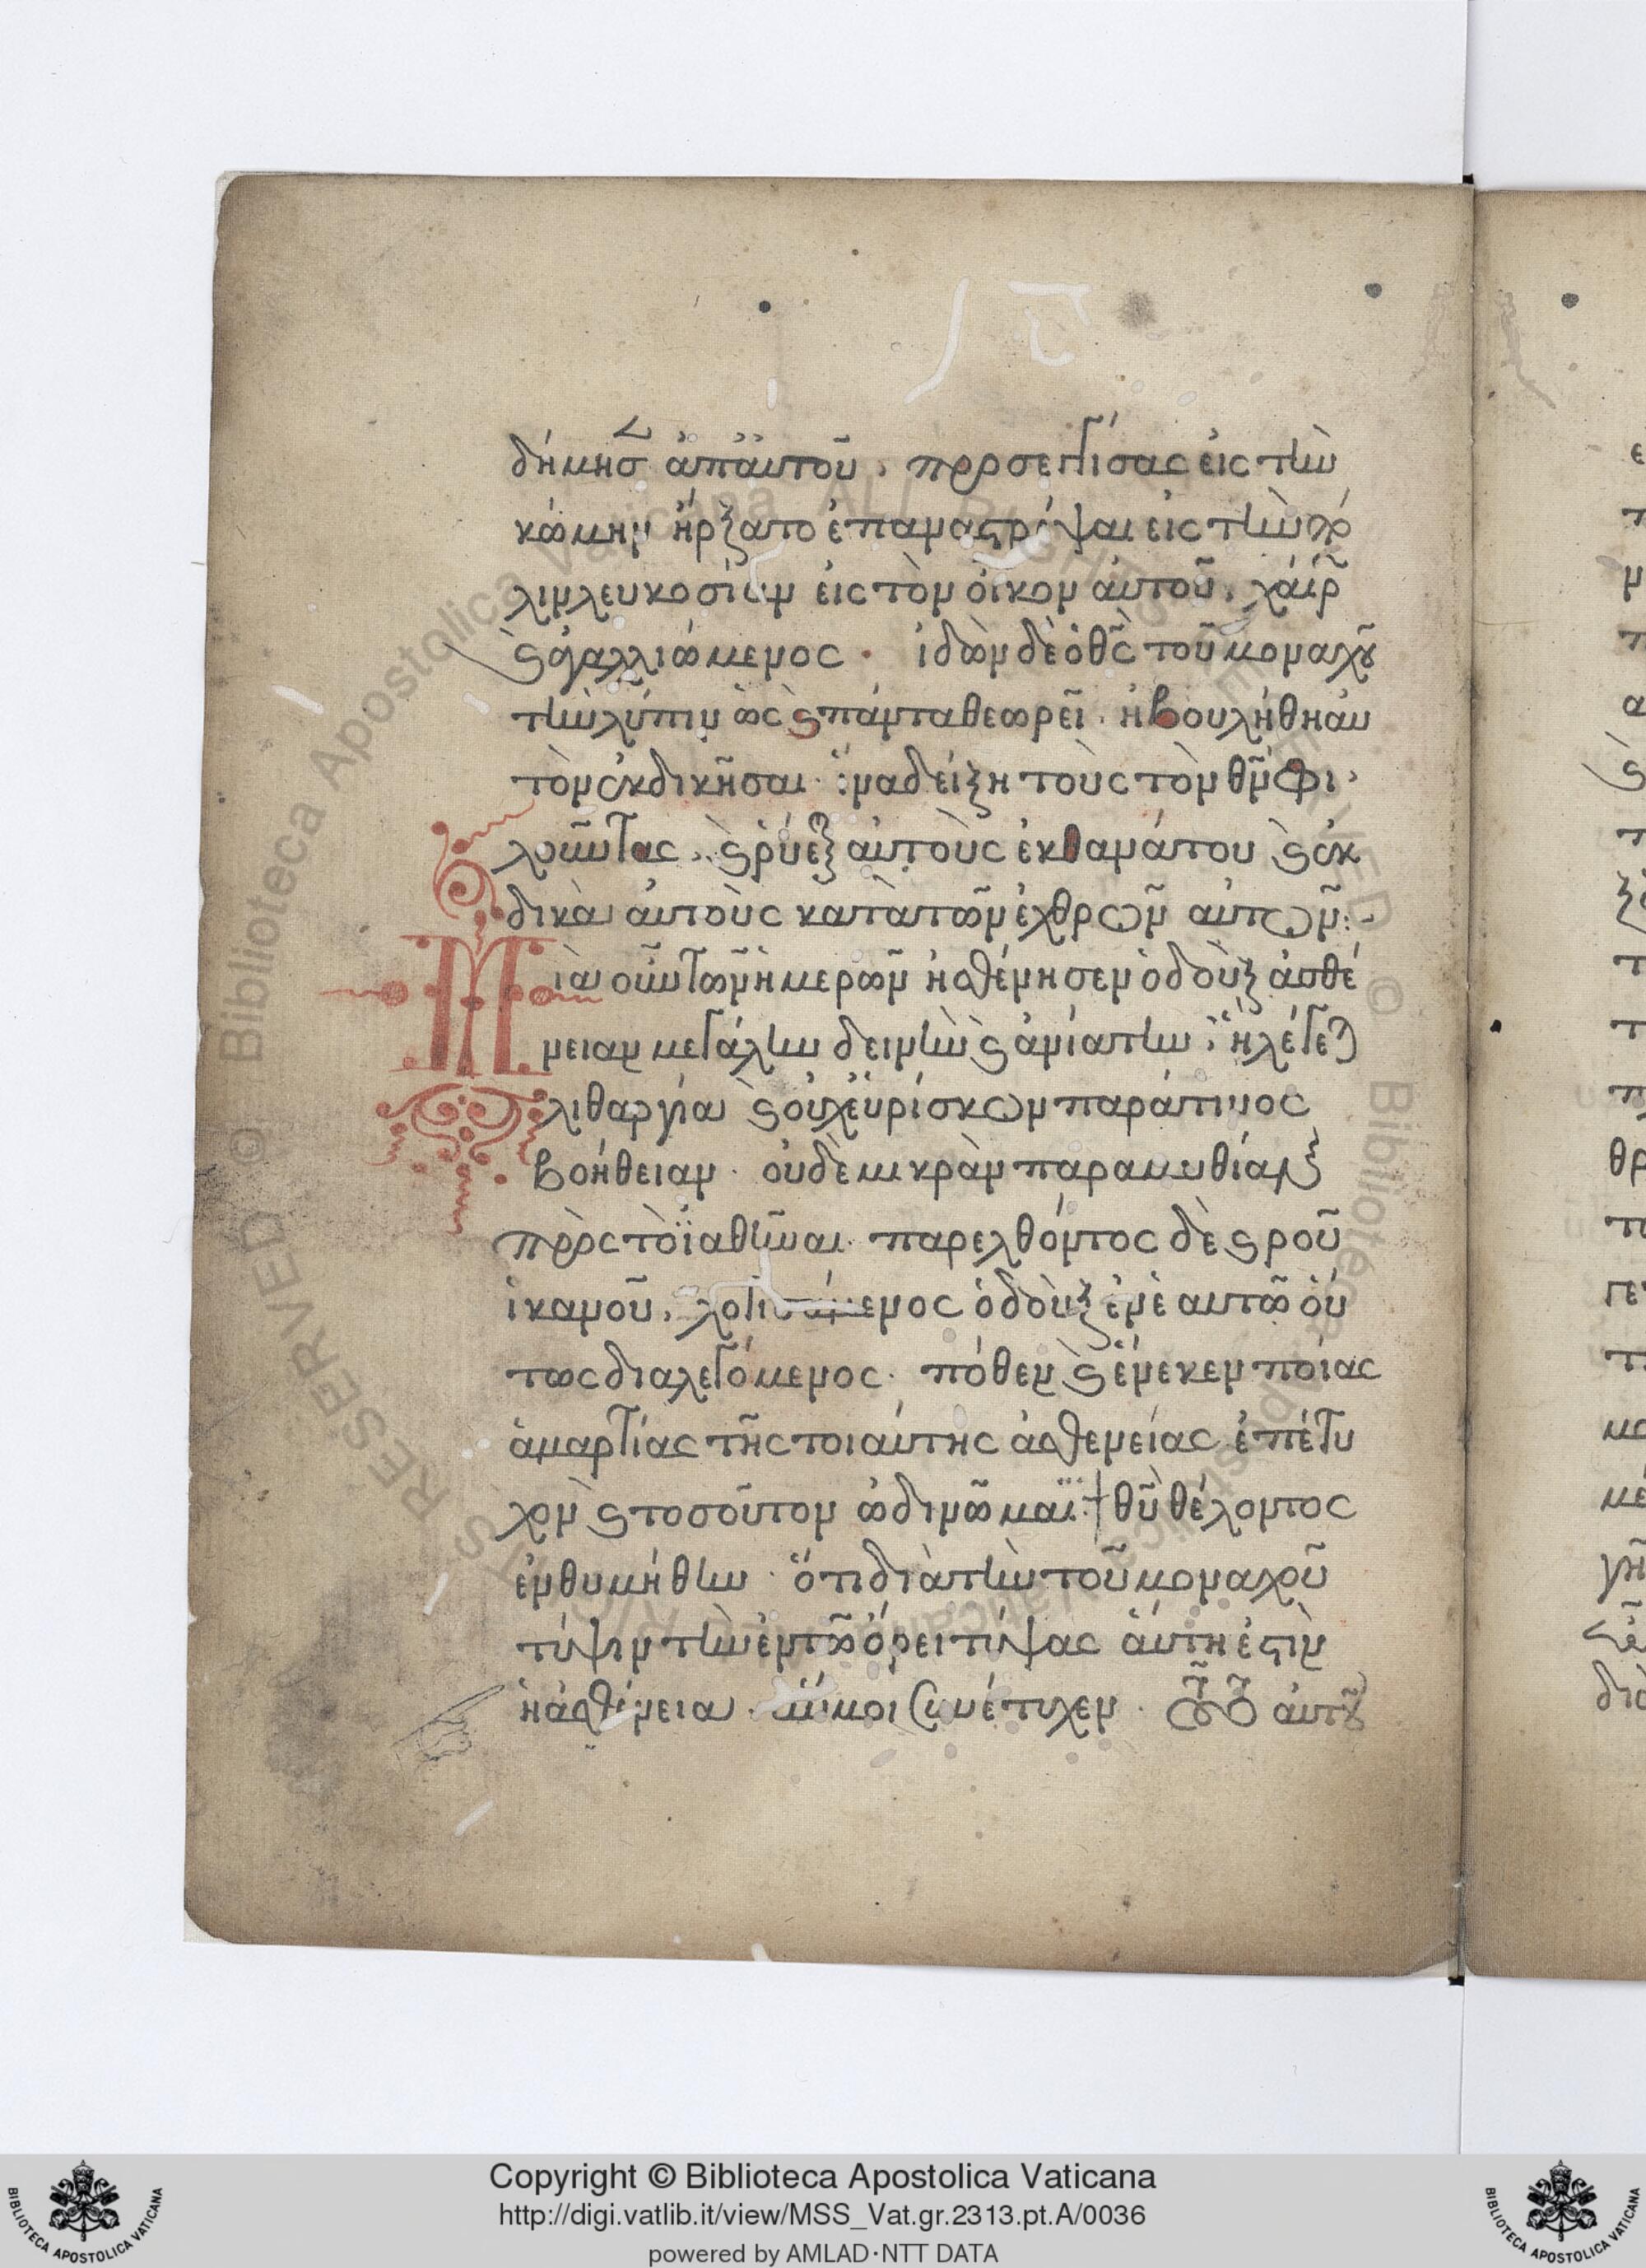 δήμησ ἀπ' αὐτοῦ, προσεγγίσας εἰς τὴν
κώμην ἤρξατο ἐπαναστρέψαι εἰς τὴν πό
λιν λευκοσίαν εἰς τὸν οἶκον αὐτοῦ, χαίρ
καὶ ἀγαλλιώμενος · ἰδὼν δὲ ὁ θς τοῦ μοναχοῦ
τὴν λύπην ὡς καὶ πάντα θεωρεῖ · ἠβουλήθη αὐ
τὸν ἐκδικῆσαι · ἵνα δείξη τοὺς τὸν θν φι
λοῦντας, καὶ ῥύεται αὐτοὺς ἐκ θανάτου καὶ ἐκ
δικὰ αὐτοὺς κατὰ τῶν ἐχθρῶν αὐτῶν :-
Μιὰ οὖν τῶν ἡμερῶν ἠσθένησεν ὁ δοὺξ ἀσθέ
νειαν μεγάλην δεινὴν καὶ ἀνίατην · ἢ λέγεται
λιθαργία καὶ οὐχ εὑρίσκων παρά τινος
βοήθειαν · οὐδὲ μικρὰν παραμυθίαν
πρὸς τὸ ἰαθῆναι · παρελθόντος δὲ καιροῦ
ἱκανοῦ, λογισάμενος ὁ δοὺξ ἐνὲ αυτῶ οὕ
τως διαλεγόμενος · πόθεν καὶ ἕνεκεν ποίας
ἁμαρτίας τῆς τοιαύτης ἀσθενείας ἐπέτυ
χον καὶ τοσοῦτον ὠδινῶμαϊ · θυ θέλοντος
ἐνθυμήθην · ὅτι διὰ τὴν τοῦ μοναχοῦ
τύψιν τὴν ἐν τῶ ὄρει τύψας αὕτη ἐστὶν
ἡ ἀσθένεια · μοι συνέτυχεν · αὐτοῦ
Copyright © Biblioteca Apostolica Vaticana
http://digi.vatlib.it/view/MSS_Vat.gr.2313.pt.A/0036
powered by AMLAD·NTT DATA